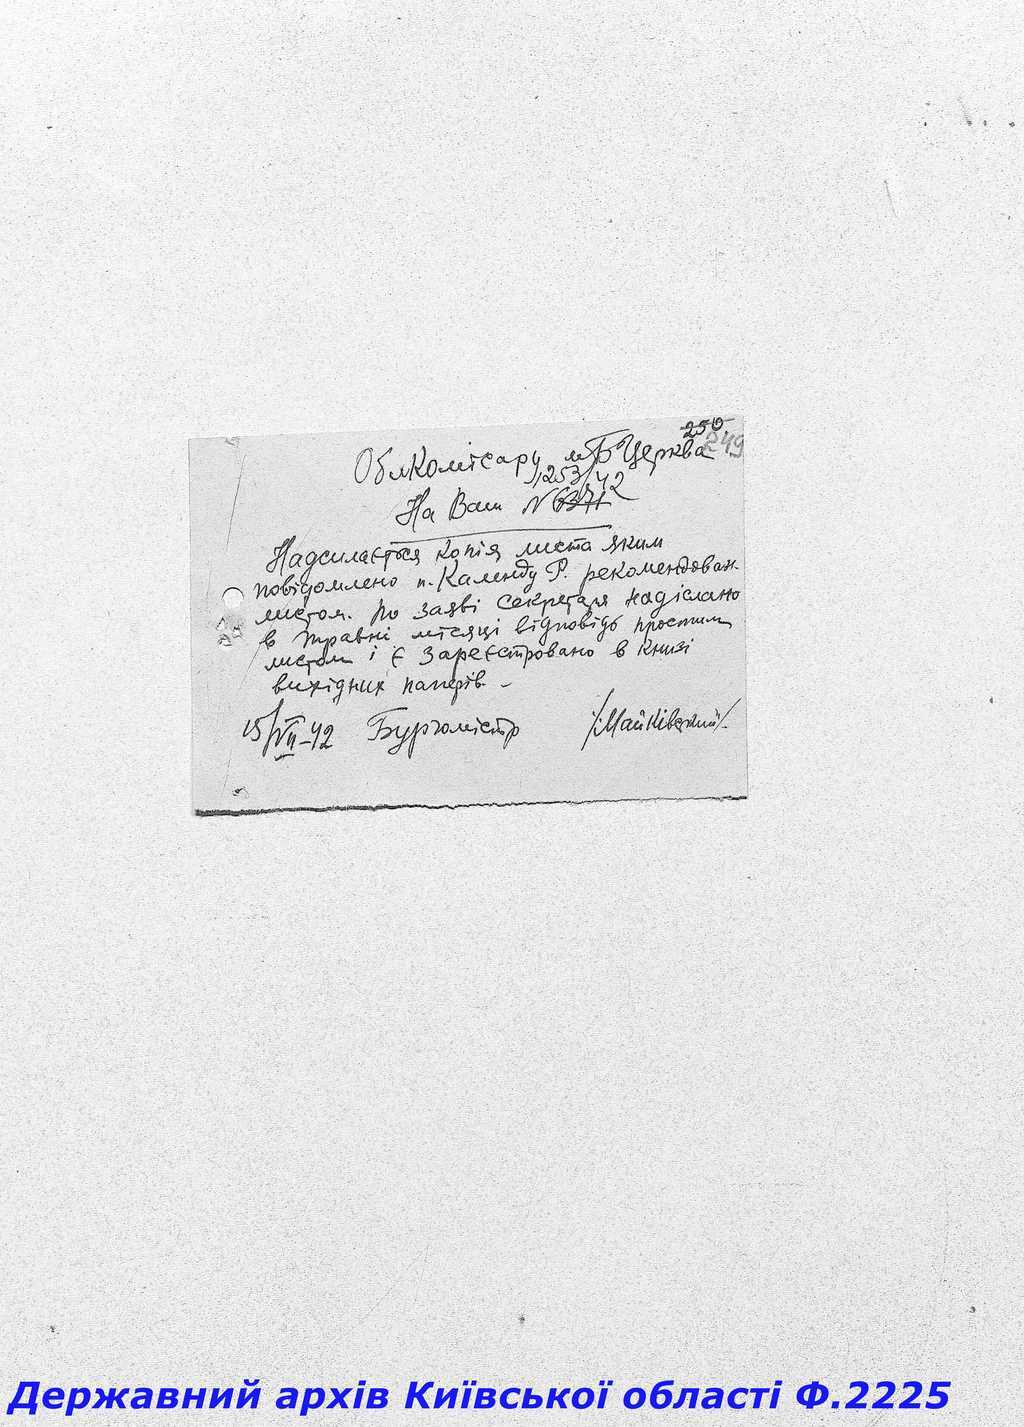 250
249
ОблКомісару м. Б. Церква
1253/42
На Ваш № 6371
Надсилається копія листа яким
повідомлено п. Календу Р. рекомендован.
листом. По заяві секретаря надіслано
в травні місяці відповідь простим
листом і є зареєстровано в книзі
вихідних паперів. –
15/VII–42 Бургомістр /Майківський/.
Державний архів Київської області Ф.2225